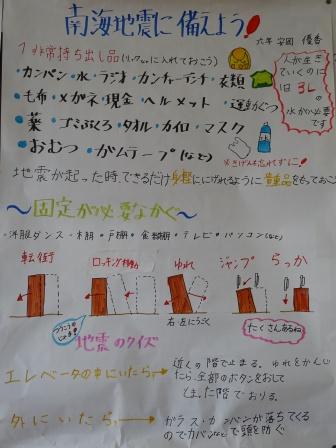 南海地震に備えよう!
六年 安岡 優香
1 非常持ち出し品(リュックなどに入れておこう)
人が生きていくのには
3L
の水が必要です
・カンパン・水・ラジオ・カンデンチ・衣類
・毛布・メガネ・現金・ヘルメット・運動ぐつ
・薬・ゴミぶくろ・タオル・カイロ・マスク
・おむつ・ガムテープ(など)
※きげんも忘れずに!
地震が起った時、できるだけ身軽ににげれるように貴重品をもっておこう
~固定が必要なかぐ~
・洋服ダンス・本棚・戸棚・食器棚・テレビ・パソコン(など)
転倒
ロッキング移動
ゆれ
右左にうごく
ジャンプ
らっか
たくさんあるね
地震のクイズ
エレベータの中にいたら→
近くの階で止まる。ゆれをかんじたら、全部のボタンをおして止まった階でおりる。
外にいたら→
ガラス・カンバンが落ちてくるのでカバンなどで頭を防ぐ